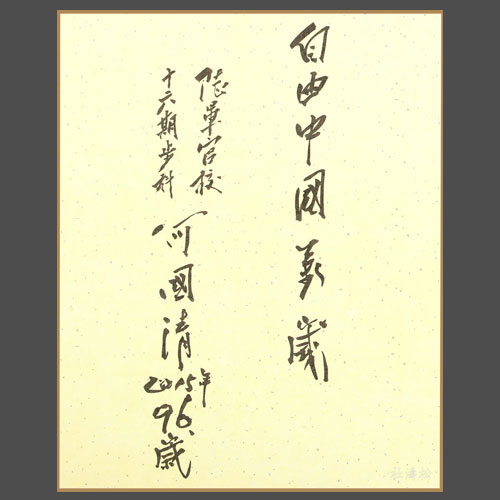 自由中國萬歲
陸軍官校
十六期步科
何國清
2015年
96歲